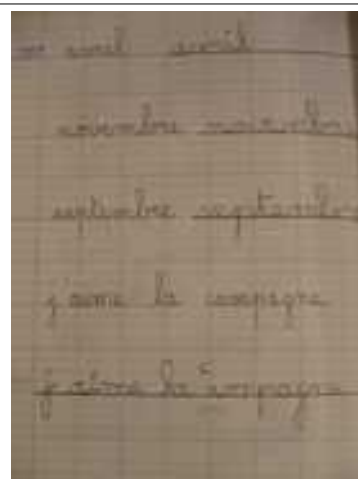 avril avril
novembre novembre
septembre septembre
j'aime la campagne
j'aime la campagne